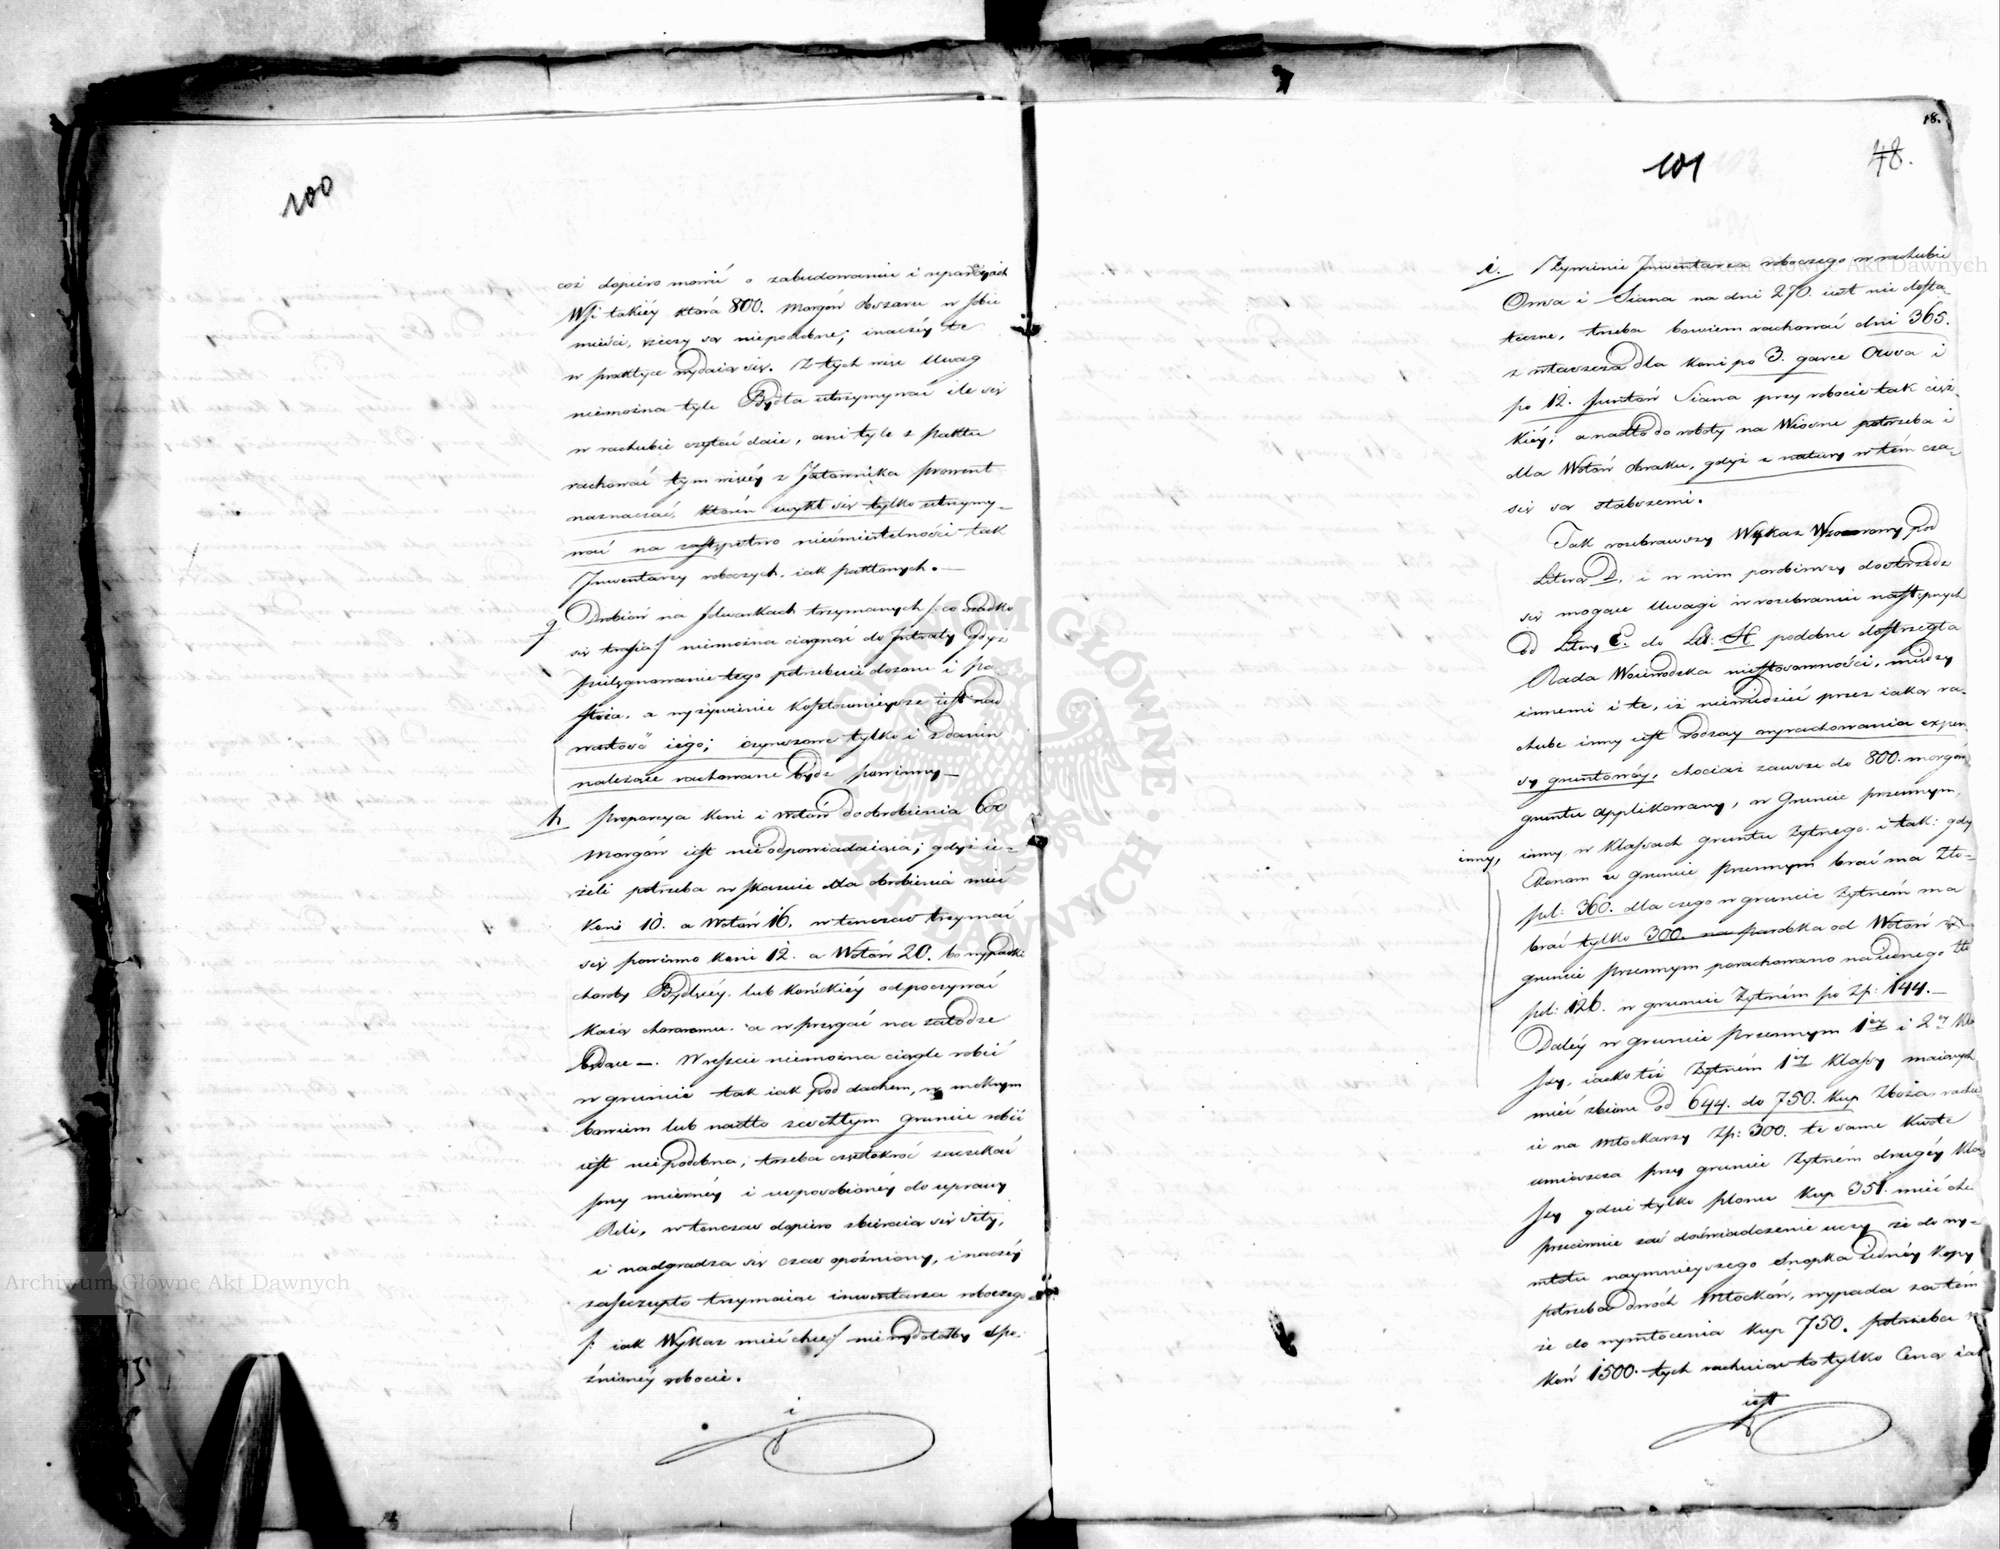 100
coż dopiero mówić o zabudowaniu i reparacyach
Wsi takiéy która 800. Morgów obszaru w sobie
mieści, rzeczy są niepodobne; inaczéy te
w praktyce wydaią się. Z tych więc Uwag
niemożna tyle Bydła utrzymywać ile się
w rachubie czytać daie, ani tyle z Paktu
rachować tym więcéy z Jałownika prowent
naznaczać, któren zwykł się tylko utrzymy-
wać na zastępstwo nieśmiertelności tak
Inwentarzy roboczych, iak paktowych. —
g Drobiów na folwarkach trzymanych /: co rzadko
się trafia / niemożna ciągnąć do Intraty gdyż
pielęgnowanie tego potrzebuie dozoru i po-
słoza, a wyżywienie kosztownieysze iest nad
wartość iego; czynszowe tylko i z danin
należące rachowane bydź powinny —
h Proporcya koni i wołów do obrobienia 600
Morgów iest nieodpowiadaiąca; gdyż ie-
żeli potrzeba wskazuie dla obrobienia mieć
Koni 10. a Wołów 16. wtenczas trzymać
się powinno koni 12. a Wołów 20. bo wypadki
choroby Bydlęcéy lub końskiéy odpoczywać
każą choremu. a w przęgać na załodze
będące —. Wreszcie niemożna ciągle robić
w gruncie tak iak pod dachem, w mokrym
bowiem lub nadto zeschłym gruncie robić
iest niepodobna, trzeba częstokroć zaczekać
przy miernéy i usposobionéy do uprawy
Roli, wtenczas dopiero zbieraią się siły,
i nadgradza się czas opóźniony, inaczéy
zaszczupło trzymaiąc inwentarza roboczego
/: iak Wykaz mieć chce / nie wydołałby spó-
źnionéy robocie.
i
18.
101
48.
i. Żywienie Inwentarza roboczego w rachubie
Owsa i Siana na dni 270. iest nie dosta-
teczne, trzeba bowiem rachować dni 365.
z właszcza dla koni po 3. garce Owsa i
po 12. funtów Siana przy robocie tak cięż-
kiéy; a nadto do roboty na Wiosnę potrzeba i
dla Wołów obroku, gdyż z natury w tém cza-
sie są słabszemi.
Tak rozebrawszy Wykaz Wzorowy pod
Literą D, i w nim porobiwszy dostrzedz
się mogące Uwagi w rozebraniu następnych
od Litery E. do Lit: H podobne dostrzegła
Rada Woiewodzka niestosowności, między
innemi i te, iż niewidzieć przez iaką ra-
chubę inny iest rodzay wyrachowania expen-
sy gruntowéy, chociaż zawsze do 800. morgów
gruntu applikowany, w Gruncie przennym,
inny, inny w klassach gruntu Żytnego. i tak: gdy
Ekonom w gruncie Przennym brać ma Zło-
pol: 360. dla czego w gruncie żytném ma
brać tylko 300. na parobka od Wołów w
gruncie Przennym porachowano na iednego Zł
pol: 126. w gruncie żytném po Zp: 144. —
Daléy w gruncie przennym 1éy i 2éy Kla
ssy, iako też Żytném 1éy Klassy maiących
mieć zbioru od 644. do 750. kup Zboża rachu
ie na Młockarzy Zp: 300. te same kwotę
umieszcza przy gruncie żytném drugiéy Kla-
ssy gdzie tylko plonu kup 351. mieć chce
przeciwnie zaś doświadczenie uczy że do wy-
młotu naymnieyszego Snopka iednéy kopy
potrzeba dwóch Młocków, wypada zatém
że do wymłócenia kup 750. potrzeba
koń 1500. tych rachuiąc to tylko Ceną iak
iest